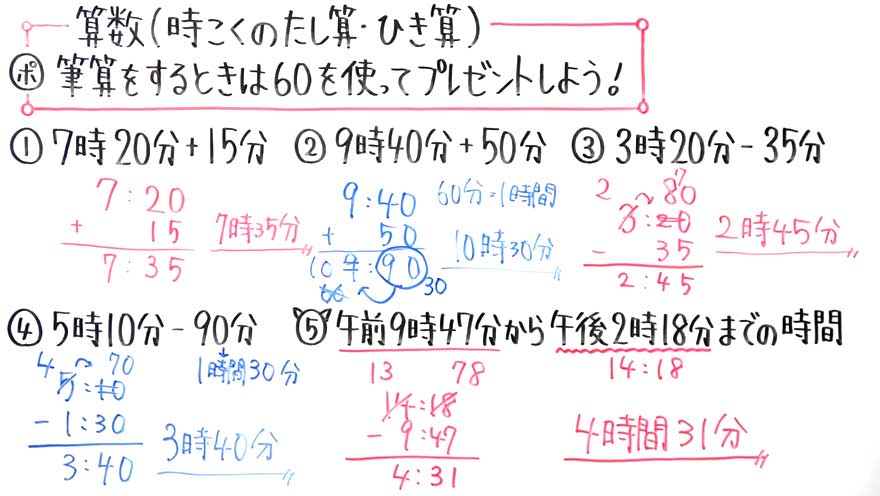 算数(時こくのたし算・ひき算)
ポ 筆算をするときは60を使ってプレゼントしよう!
① 7時20分+15分
7:20
+ 15
7:35
7時35分
② 9時40分+50分
9:40
+ 50
9:90
10 30
60
60分=1時間
10時30分
③ 3時20分-35分
2 80
3:20
- 35
2:45
2時45分
④ 5時10分-90分
1時間30分
4 70
5:10
-1:30
3:40
3時40分
⑤ 午前9時47分から午後2時18分までの時間
14:18
13 78
14:18
- 9:47
4:31
4時間31分